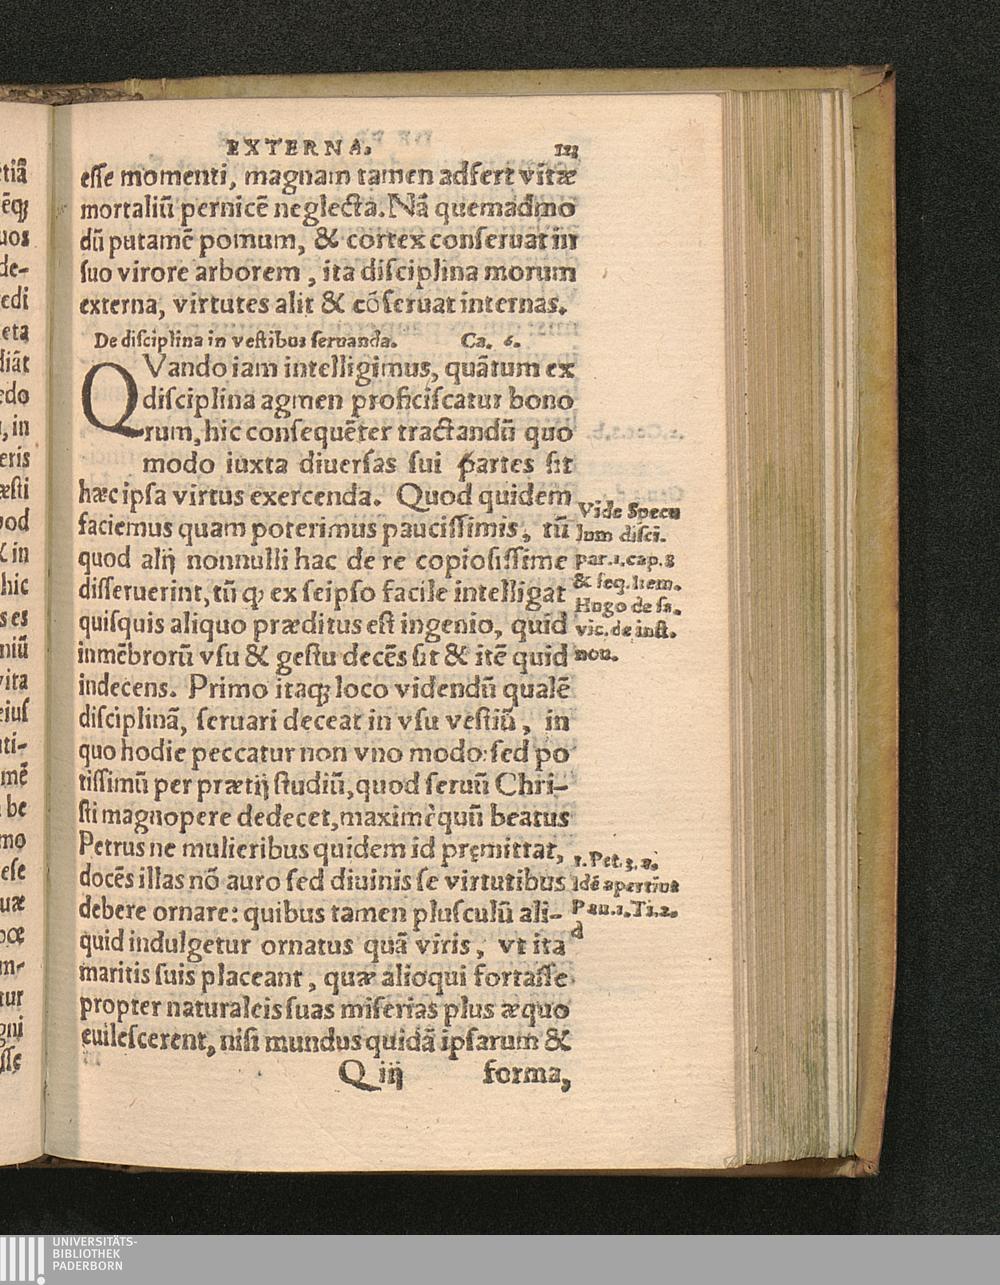 EXTERNA. 123
esse momenti, magnam tamen adfert vitæ
mortaliũ pernicẽ neglecta. Nã quemadmo
dũ putamẽ pomum, & cortex conseruat in
suo virore arborem, ita disciplina morum
externa, virtutes alit & cõseruat internas.
De disciplina in vestibus seruanda. Ca. 6.
QVando iam intelligimus, quãtum ex
disciplina agmen proficiscatur bono
rum, hic consequẽter tractandũ quo
modo iuxta diuersas sui ꝑartes sit
hæc ipsa virtus exercenda. Quod quidem
faciemus quam poterimus paucissimis, tũ
quod alij nonnulli hac de re copiosissime
disseruerint, tũ ꝙ ex seipso facile intelligat
quisquis aliquo præditus est ingenio, quid
in mẽbrorũ vsu & gestu decẽs sit & itẽ quid
indecens. Primo itaq; loco videndũ qualẽ
disciplinã, seruari deceat in vsu vestiũ, in
quo hodie peccatur non vno modo: sed po
tissimũ per prætij studiũ, quod seruũ Chri-
sti magnopere dedecet, maximè quũ beatus
Petrus ne mulieribus quidem id pręmittat,
docẽs illas nõ auro sed diuinis se virtutibus
debere ornare: quibus tamen plusculũ ali-
quid indulgetur ornatus quã viris, vt ita
maritis suis placeant, quæ alioqui fortasse
propter naturaleis suas miserias plus æquo
euilescerent, nisi mundus quidã ipsarum &
Q iij forma,
Vide Specu
lum disci.
par. 1. cap. 8
& seq. Item.
Hugo de sa.
vic. de inst.
nou.
1. Pet. 3. a.
Idẽ apertius
Pau. 1. Ti. 2.
d
UNIVERSITÄTS-
BIBLIOTHEK
PADERBORN